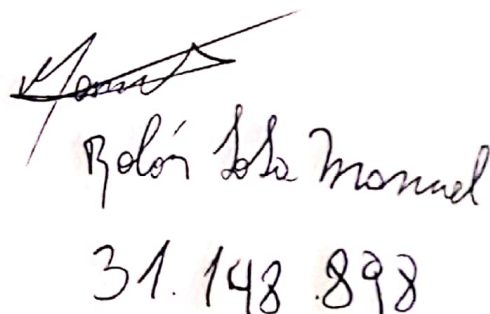 Rolón Sosa Manuel
31.148.898